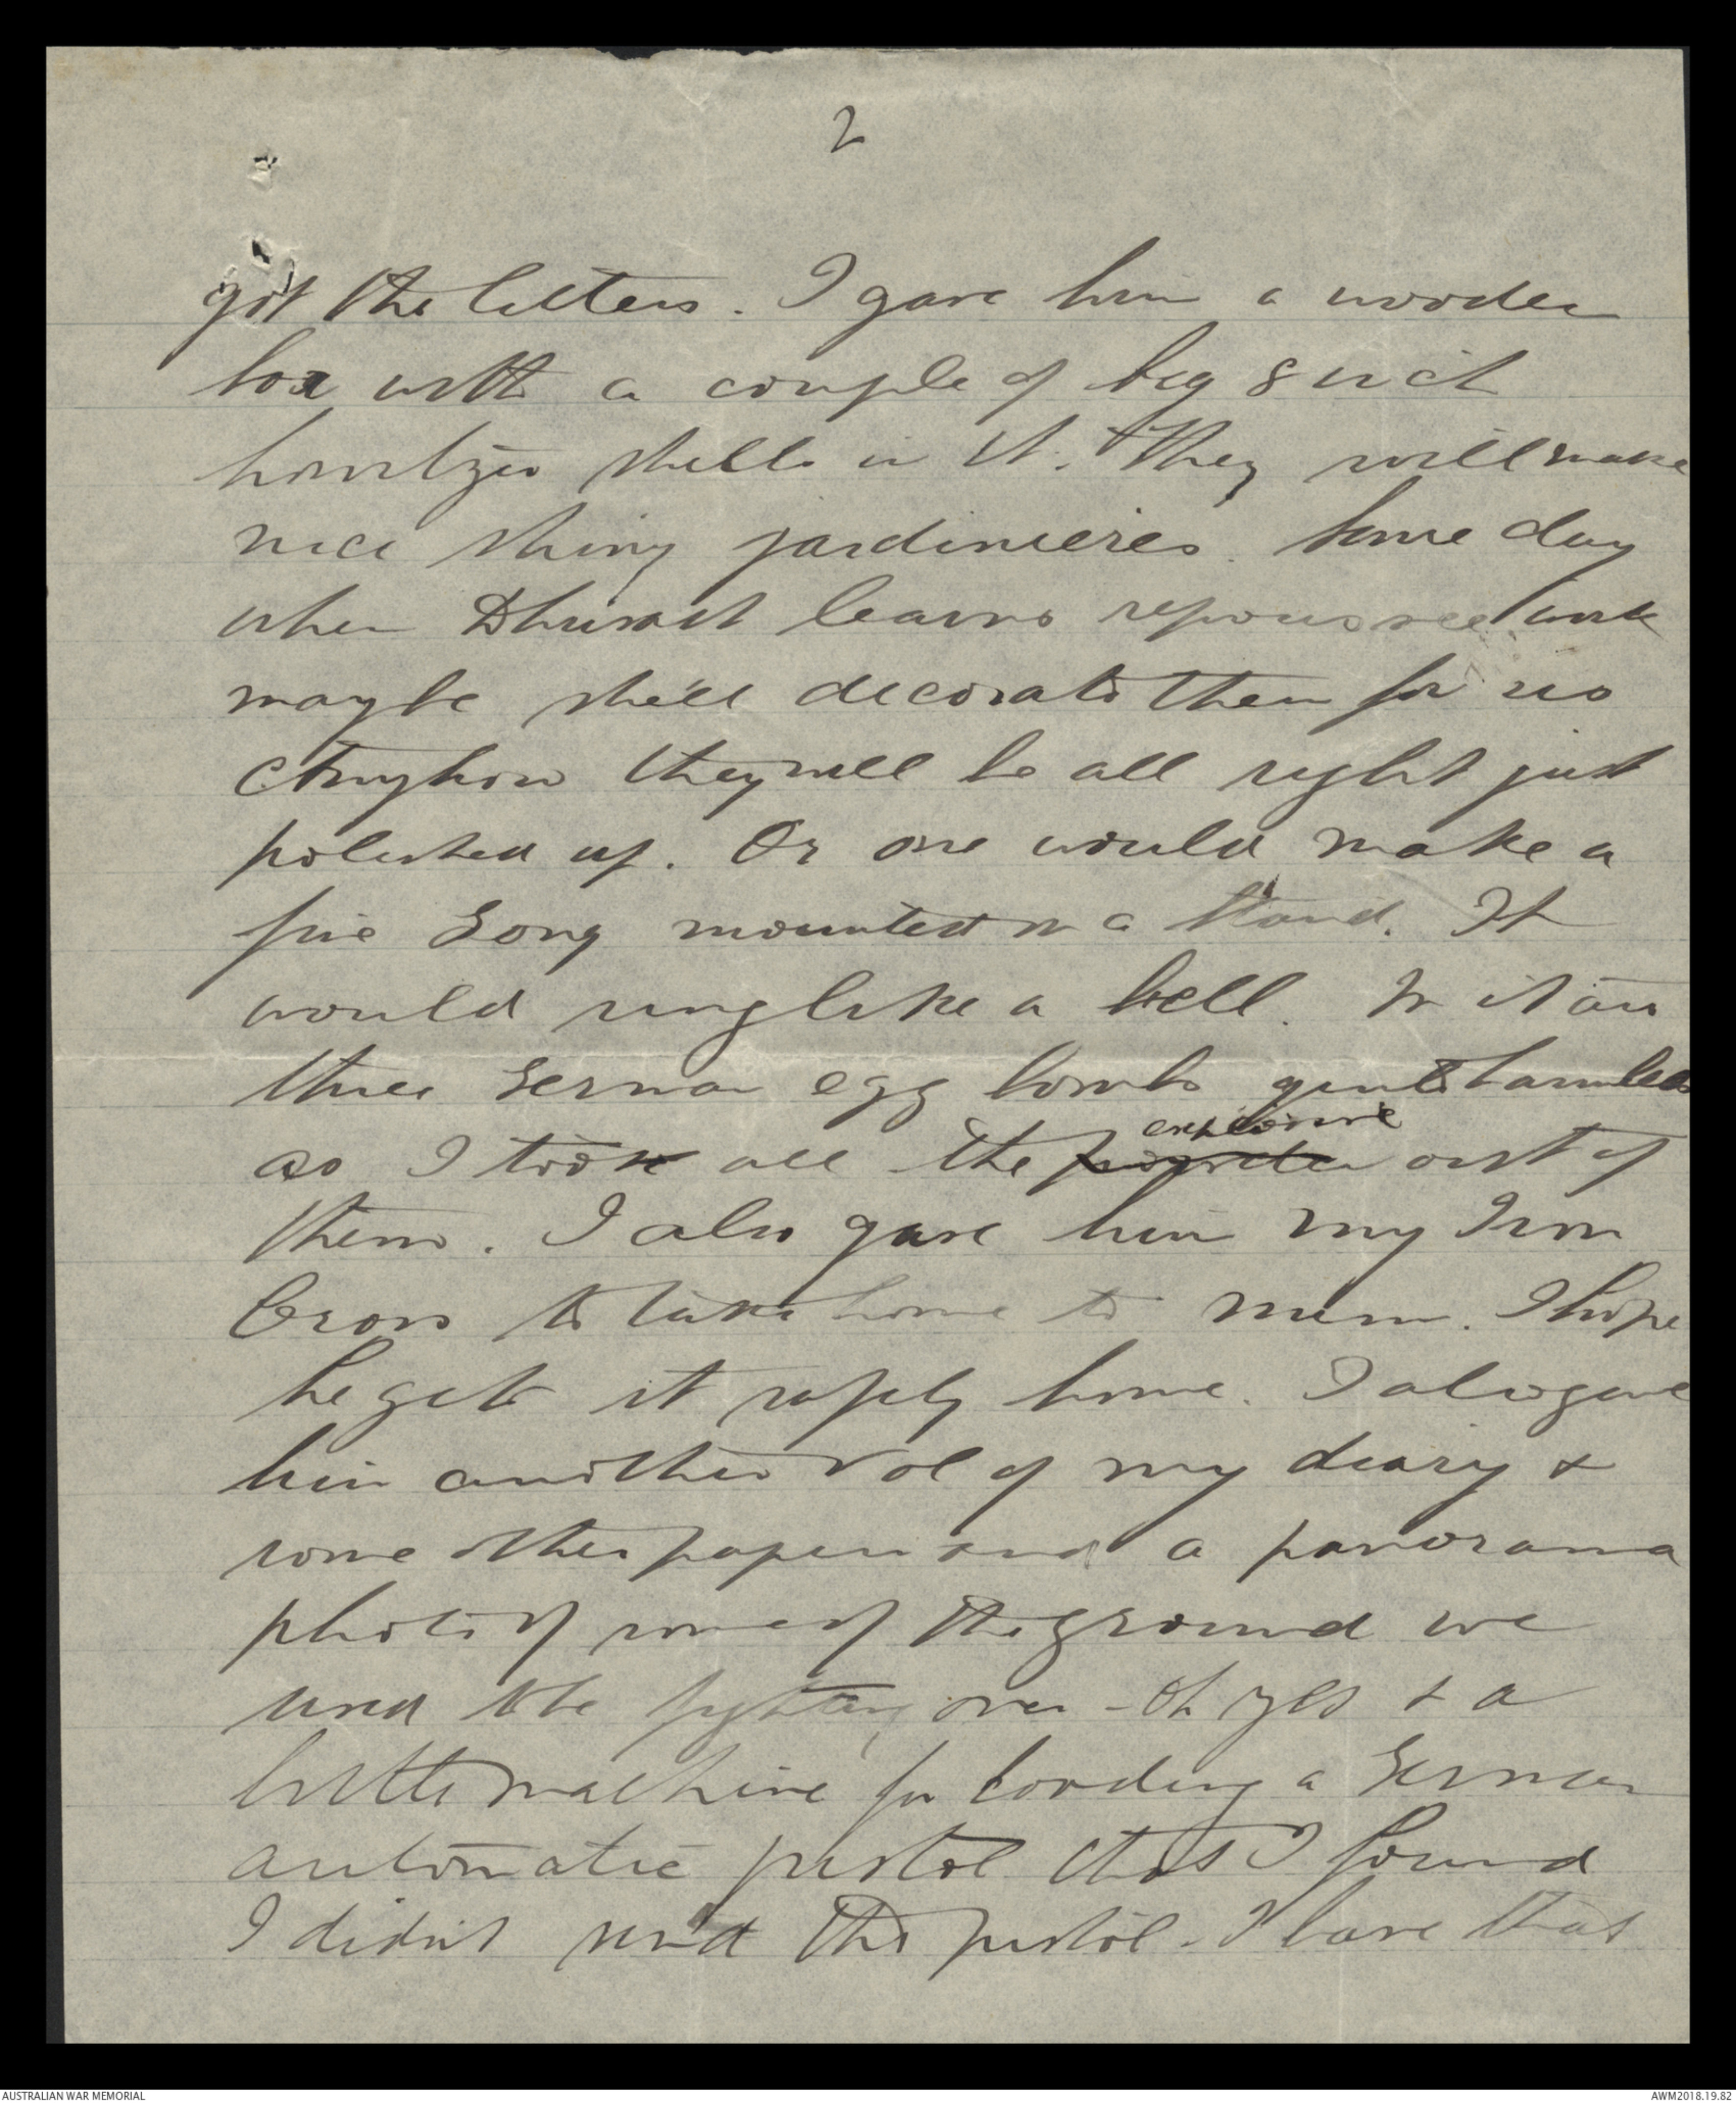 2
got the letters. I gave him a wooden
box with a couple of big 8 inch
howitzer shells in it. They will make
nice shiny jardinieres. Some day
when learns repousee work
maybe she'll decorate them for us
Anyhow they will be all right just
polished up. Or one would make a
fine Gong mounted on a stand. It
would ring like a bell. In it are
three German egg bombs quite harmless
explosive
as I took all the powder out of
them. I also gave him my Iron
Cross to take home to mum. I hope
he gets it safely home. I also gave
him another vol of my diary &
some other papers and a panorama
photo of some of the ground we
used to be fighting over - oh yes & a
little machine for loading a German
automatic pistol that I found
I didn't send the pistol - I have that
AUSTRALIAN WAR MEMORIAL
AWM2018.19.82